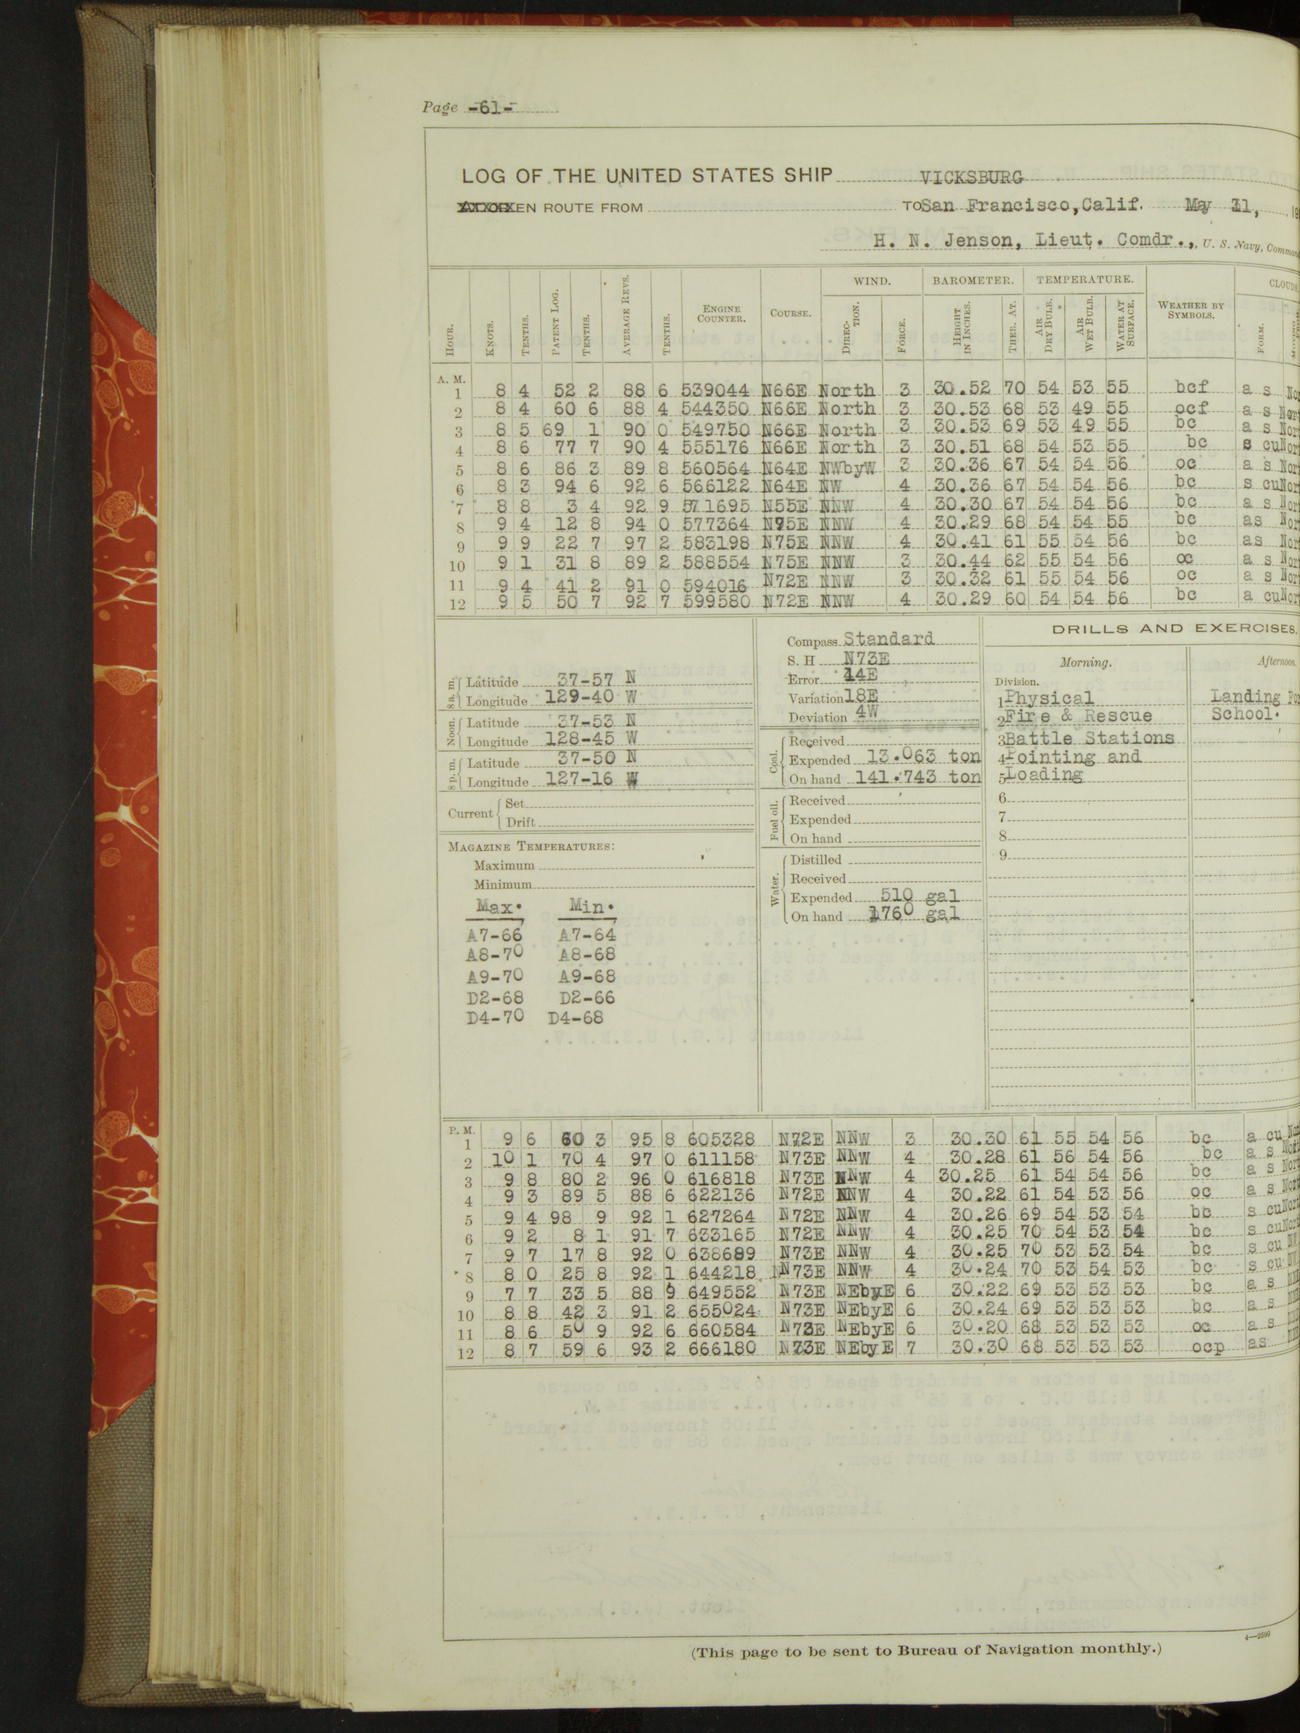 Page -61-
LOG OF THE UNITED STATES SHIP VICKSBURG
EN ROUTE FROM TO San Francisco, Calif. May 31, 19
H. N. Jenson, Lieut. Comdr., U. S. Navy, Command
HOUR. KNOTS. TENTHS. PATENT LOG. TENTHS. AVERAGE REVS. TENTHS. ENGINE COUNTER. COURSE. WIND. DIRECTION. FORCE. BAROMETER. HEIGHT IN INCHES. THER. AT. TEMPERATURE. AIR DRY BULB. AIR WET BULB. WATER AT SURFACE. WEATHER BY SYMBOLS. CLOUDS FORM.
A. M.
1 8 4 52 2 88 6 539044 N66E North 3 30.52 70 54 53 55 bcf a s Nor
2 8 4 60 6 88 4 544350 N66E North 3 30.53 68 53 49 55 ocf a s Nor
3 8 5 69 1 90 0 549750 N66E North 3 30.53 69 53 49 55 bc a s Nor
4 8 6 77 7 90 4 555176 N66E North 3 30.51 68 54 53 55 bc s cu Nor
5 8 6 86 3 89 8 560564 N64E NWbyW 3 30.36 67 54 54 56 oc a s Nor
6 8 3 94 6 92 6 566122 N64E NW 4 30.36 67 54 54 56 bc s cu Nor
7 8 8 3 4 92 9 571695 N55E NNW 4 30.30 67 54 54 56 bc a s Nor
8 9 4 12 8 94 0 577364 N75E NNW 4 30.29 68 54 54 55 bc as Nor
9 9 9 22 7 97 2 583198 N75E NNW 4 30.41 61 55 54 56 bc as Nor
10 9 1 31 8 89 2 588554 N75E NNW 3 30.44 62 55 54 56 oc a s Nor
11 9 4 41 2 91 0 594016 N72E NNW 3 30.32 61 55 54 56 oc a s Nor
12 9 5 50 7 92 7 599580 N72E NNW 4 30.29 60 54 54 56 bc a cu Nor
8 a. m. Latitude 37-57 N
Longitude 129-40 W
Noon. Latitude 37-53 N
Longitude 128-45 W
8 p. m. Latitude 37-50 N
Longitude 127-16 W
Current Set
Drift
MAGAZINE TEMPERATURES:
Maximum
Minimum
Max. Min.
A7-66 A7-64
A8-70 A8-68
A9-70 A9-68
D2-68 D2-66
D4-70 D4-68
Compass Standard
S. H N73E
Error 14E
Variation 18E
Deviation 4W
Coal. Received
Expended 13.063 ton
On hand 141.743 ton
Fuel oil. Received
Expended
On hand
Water. Distilled
Received
Expended 510 gal
On hand 1760 gal
DRILLS AND EXERCISES.
Morning. Afternoon.
Division.
1 Physical Landing For
2 Fire & Rescue School.
3 Battle Stations
4 Pointing and
5 Loading
6
7
8
9
P. M.
1 9 6 60 3 95 8 605328 N72E NNW 3 30.30 61 55 54 56 bc a cu
2 10 1 70 4 97 0 611158 N73E NNW 4 30.28 61 56 54 56 bc a s Nor
3 9 8 80 2 96 0 616818 N73E NNW 4 30.25 61 54 54 56 bc a s Nor
4 9 3 89 5 88 6 622136 N72E NNW 4 30.22 61 54 53 56 oc a s Nor
5 9 4 98 9 92 1 627264 N72E NNW 4 30.26 69 54 53 54 bc s cu Nor
6 9 2 8 1 91 7 633165 N72E NNW 4 30.25 70 54 53 54 bc s cu
7 9 7 17 8 92 0 638689 N73E NNW 4 30.25 70 53 53 54 bc s cu
8 8 0 25 8 92 1 644218 N73E NNW 4 30.24 70 53 54 53 bc s cu
9 7 7 33 5 88 9 649552 N73E NEbyE 6 30.22 69 53 53 53 bc a s
10 8 8 42 3 91 2 655024 N73E NEbyE 6 30.24 69 53 53 53 bc a s
11 8 6 50 9 92 6 660584 N73E NEbyE 6 30.20 68 53 53 53 oc a s
12 8 7 59 6 93 2 666180 N73E NEbyE 7 30.30 68 53 53 53 ocp as
4—2599
(This page to be sent to Bureau of Navigation monthly.)